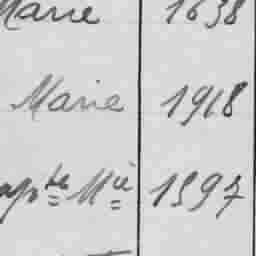 Marie 1638
Marie 1918
apte Mie 1397